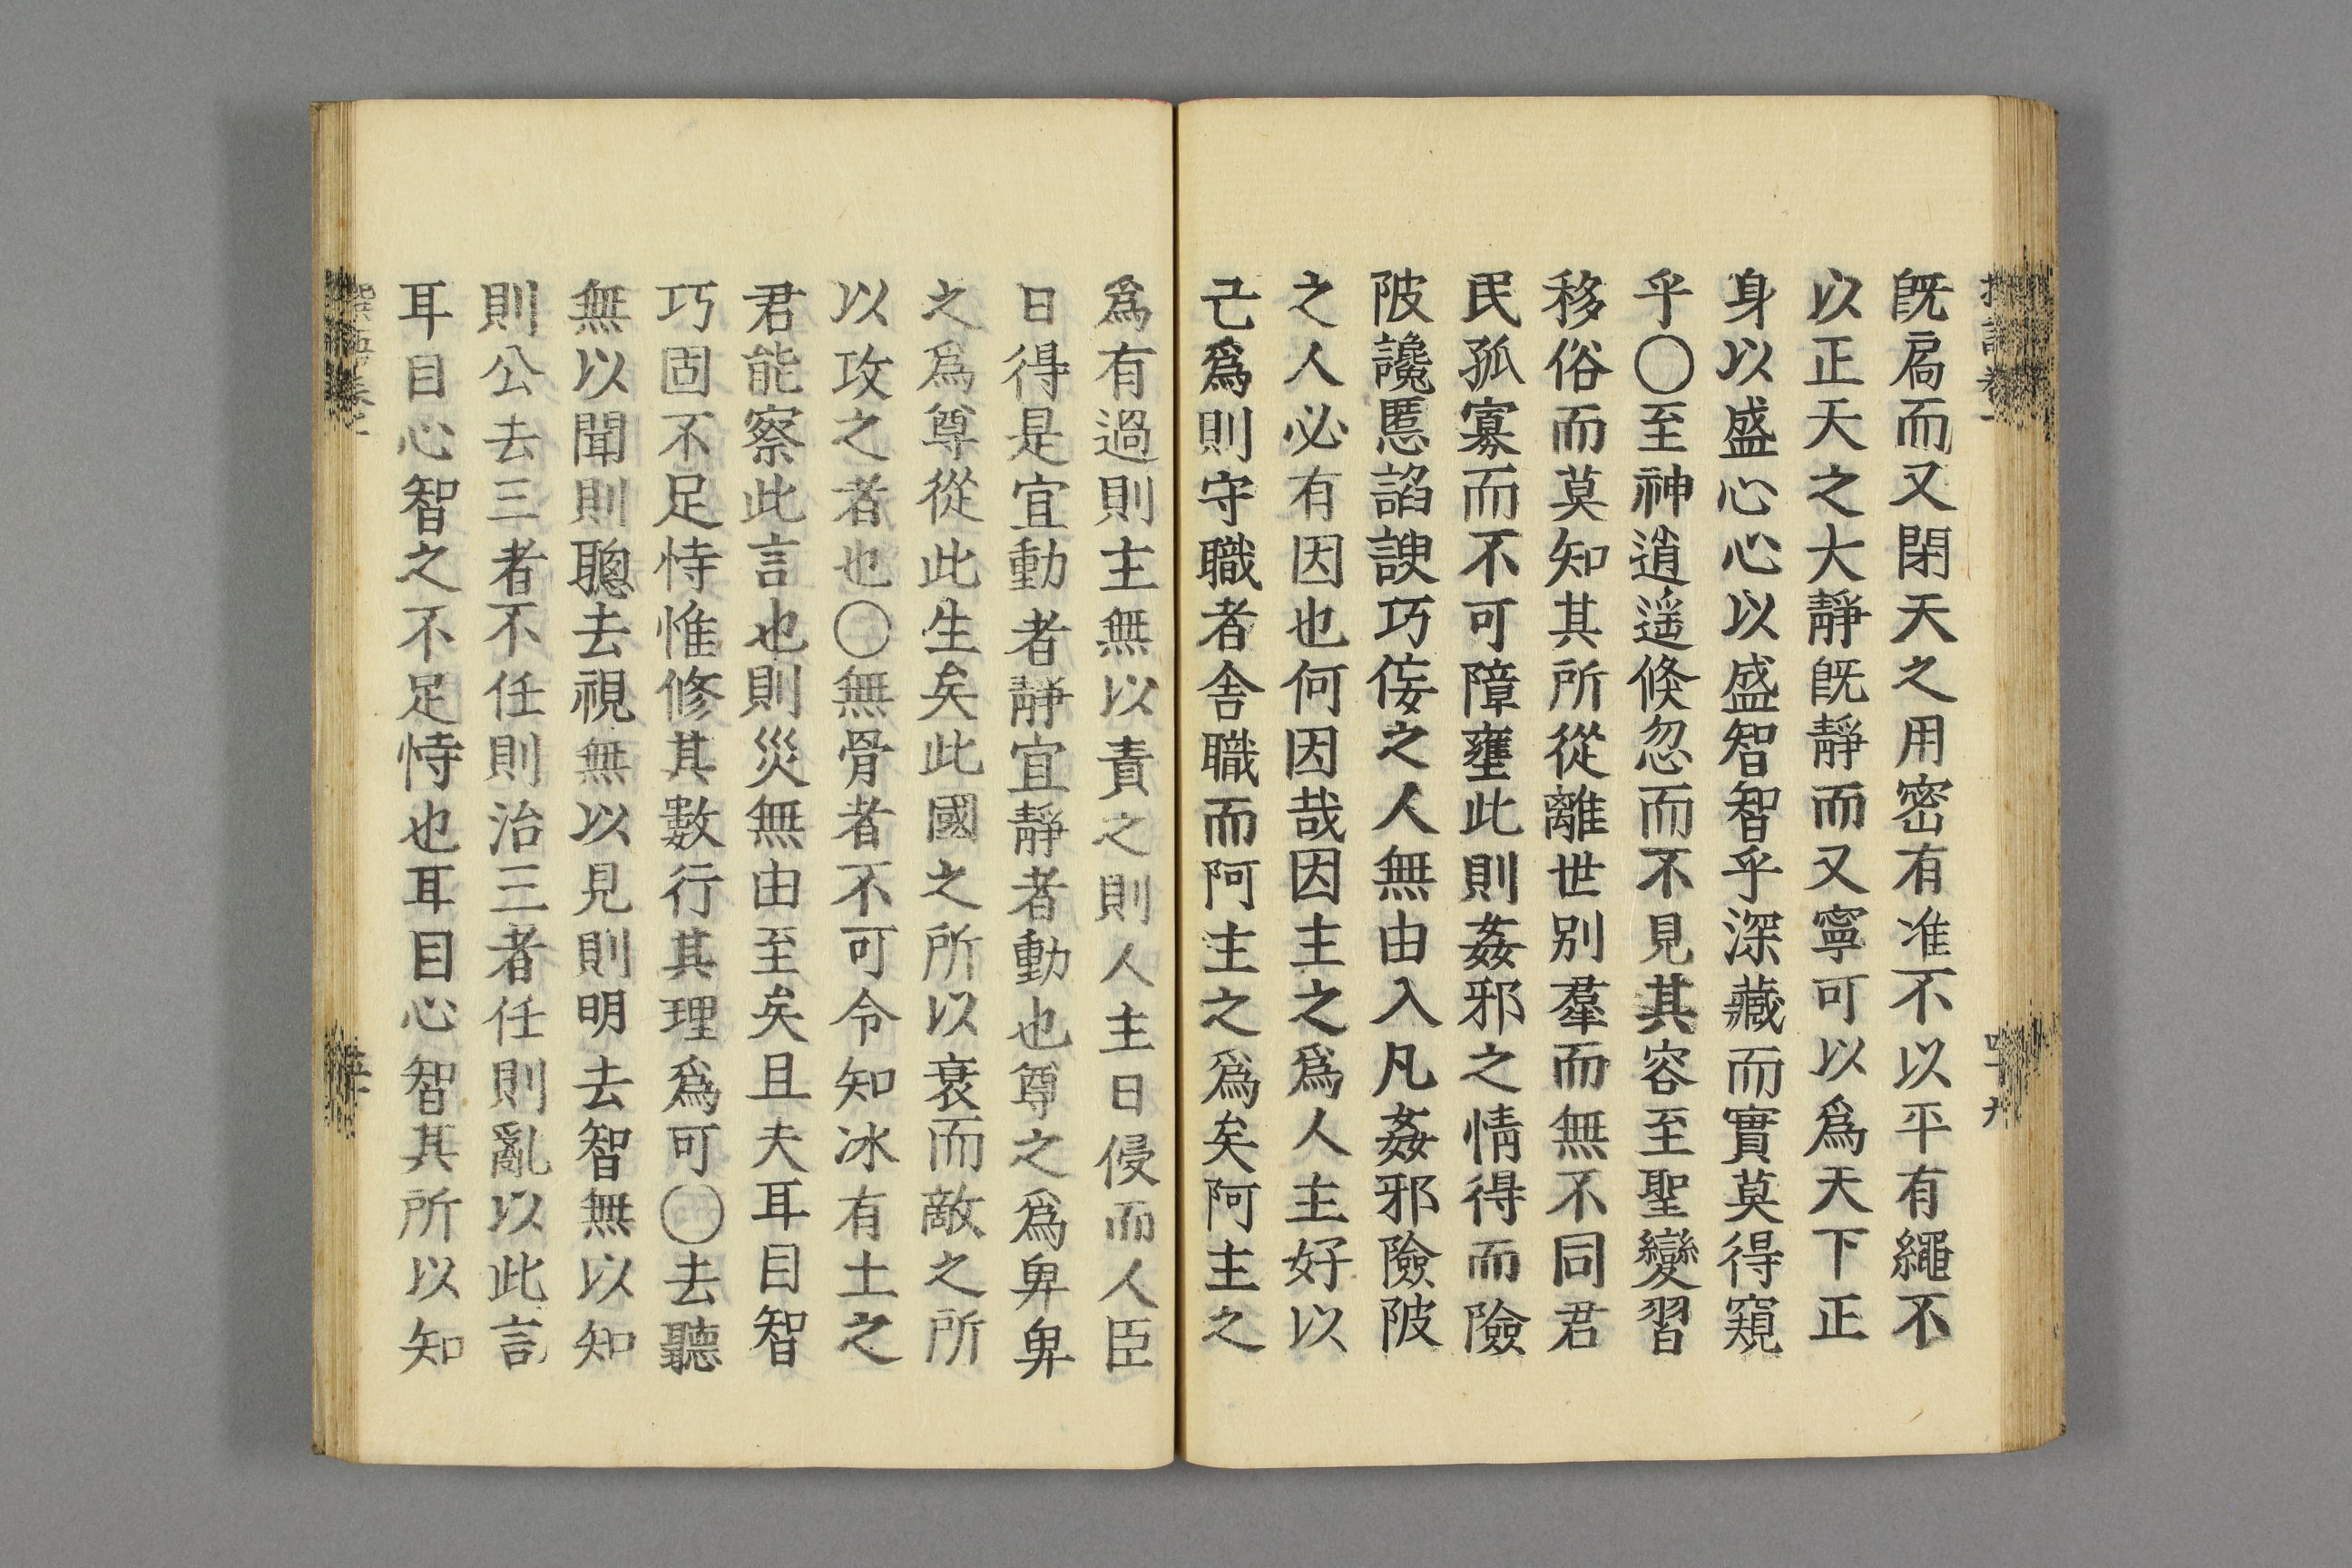 旣扃而又閉天之用密有准不以平有繩不
以正天之大靜旣靜而又寧可以爲天下正
身以盛心心以盛智智乎深藏而實莫得窺
乎〇至神逍遥倏忽而不見其容至聖變習
移俗而莫知其所從離世别羣而無不同君
民孤寡而不可障壅此則姦邪之情得而險
陂讒慝諂諛巧佞之人無由入凡姦邪險陂
之人必有因也何因哉因主之爲人主好以
己爲則守職者舍職而阿主之爲矣阿主之
爲有過則主無以責之則人主日侵而人臣
日得是宜動者靜宜靜者動也尊之爲卑卑
之爲尊從此生矣此國之所以衰而敵之所
以攻之者也〇無骨者不可令知冰有土之
君能察此言也則災無由至矣且夫耳目智
巧固不足恃惟修其數行其理爲可〇去聽
無以聞則聰去視無以見則明去智無以知
則公去三者不任則治三者任則亂以此言
耳目心智之不足恃也耳目心智其所以知
四十九